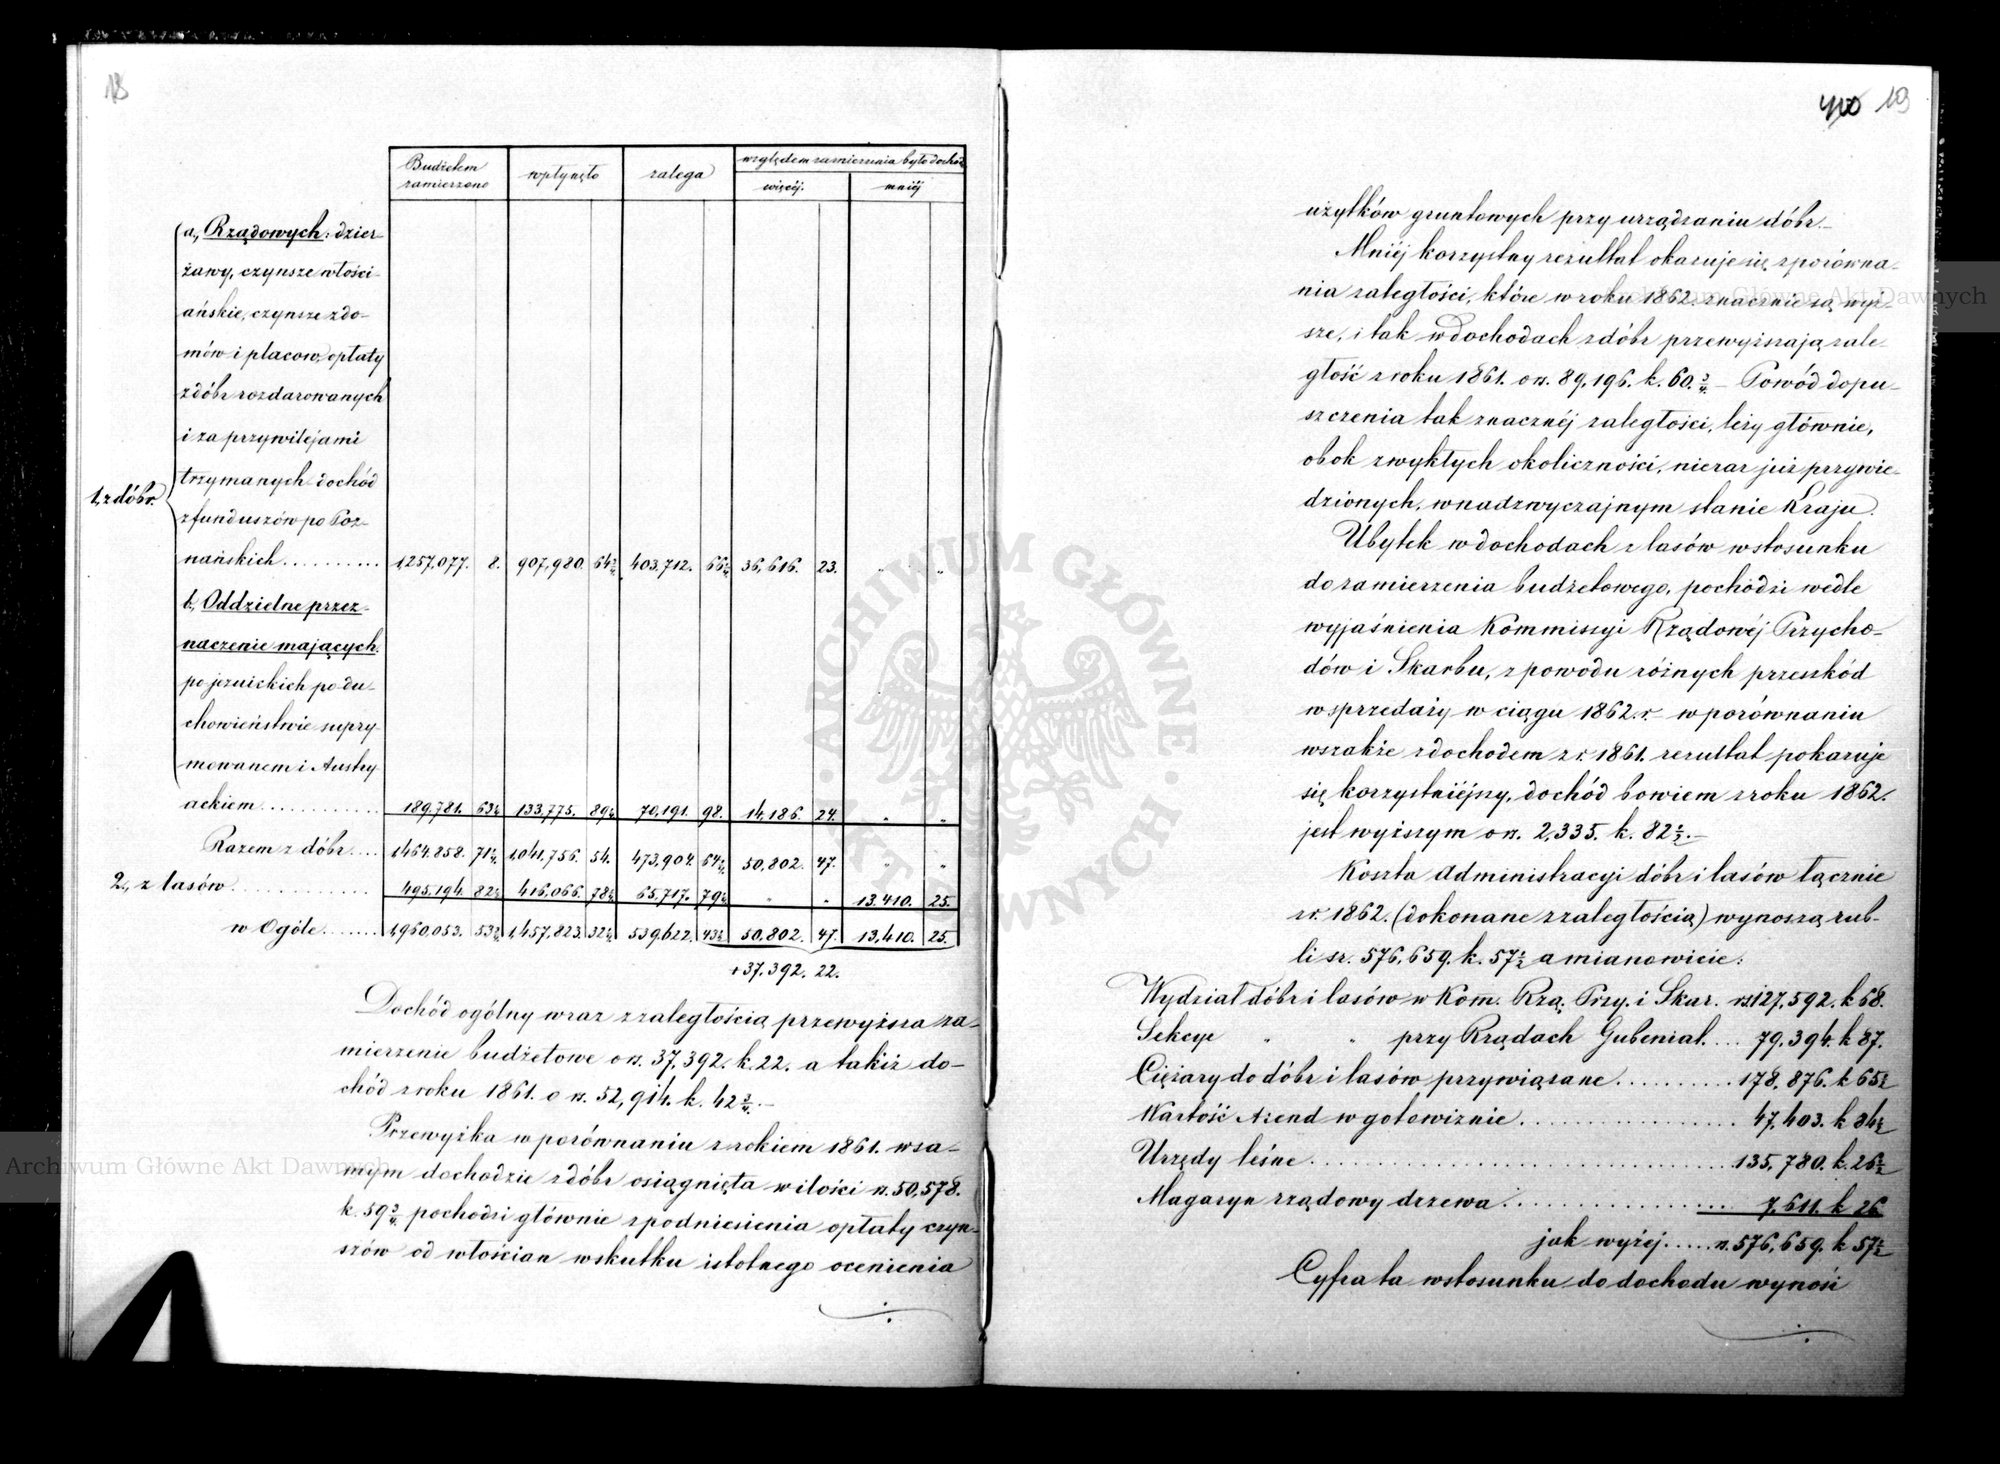 18
Budżetem zamierzono | wpłynęło | zalega | względem zamierzenia było dochodu
więcéj. | mniéj
a, Rządowych: dzier-
żawy, czynsze włości-
ańskie, czynsze z do-
mów i placow, opłaty
z dóbr rozdarowanych
i za przywilejami
trzymanych dochód
z funduszów po Poz-
1, z dóbr.
nańskich.......... 1,257,077. 8. 907,980. 64 3/4 403,712. 66 36,616. 23. " "
b, Oddzielne przez-
naczenie mających.
po jezuickich po du-
chowieństwie supry-
mowanem i Austry-
ackiem............ 189,781. 63 133,775. 89 70,191. 98. 14,186. 24. " "
Razem z dóbr.... 1,464,858. 71 1,041,756. 54. 473,904. 64 50,802. 47. " "
2, z lasów............ 495,194. 82 416,066. 78 65,717. 79 " " 13,410. 25.
w Ogóle....... 1,960,053. 53 1,457,823. 32 539,622. 43 50,802. 47. 13,410. 25.
+37,392. 22.
Dochód ogólny wraz z zaległością przewyższa za-
mierzenie budżetowe o rs. 37,392. k. 22. a takiż do-
chód z roku 1861. o rs. 52,914. k. 42 3/4. —
Przewyżka w porównaniu z rokiem 1861. w sa-
mym dochodzie z dóbr osiągnięta w ilości rs. 50,578.
k. 59 3/4 pochodzi głównie z podniesienia opłaty czyn-
szów od włościan wskutku istotnego ocenienia
400 19
użytków gruntowych przy urządzaniu dóbr. —
Mniéj korzystny rezultat okazuje się z porówna-
nia zaległości, które w roku 1862. znacznie są wyż-
sze, i tak w dochodach z dóbr przewyższają zale-
głość z roku 1861. o rs. 89,196. k. 60. 3/4 — Powód dopu-
szczenia tak znacznéj zaległości, leży głównie,
obok zwykłych okoliczności, nieraz już przywie-
dzionych, w nadzwyczajnym stanie Kraju.
Ubytek w dochodach z lasów w stosunku
do zamierzenia budżetowego, pochodzi wedle
wyjaśnienia Kommissyi Rządowéj Przycho-
dów i Skarbu, z powodu różnych przeszkód
w sprzedaży w ciągu 1862. r. — w porównaniu
wszakże z dochodem z r. 1861. rezultat pokazuje
się korzystniéjszy, dochód bowiem z roku 1862.
jest wyższym o rs. 2,335. k. 82 1/2. —
Koszta Administracyi dóbr i lasów łącznie
z r. 1862. (dokonane z zaległością) wynoszą rub-
li sr. 576,659. k. 57 1/2 a mianowicie:
Wydział dóbr i lasów w Kom. Rzą. Przy. i Skar. rs. 127,592. k 68.
Sekcye " " przy Rządach Gubernial.... 79,394. k 87.
Ciężary do dóbr i lasów przywiązane.......... 178,876. k 65 1/2
Wartość Arend w gotowiznie.................. 47,403. k 84 1/2
Urzędy leśne.................................. 135,780. k. 26 1/2
Magazyn rządowy drzewa.................... 7,611. k 26
jak wyżej..... rs. 576,659. k 57 1/2
Cyfra ta w stosunku do dochodu wynosi
ARCHIWUM GŁÓWNE AKT DAWNYCH
Archiwum Główne Akt Dawnych
Archiwum Główne Akt Dawnych